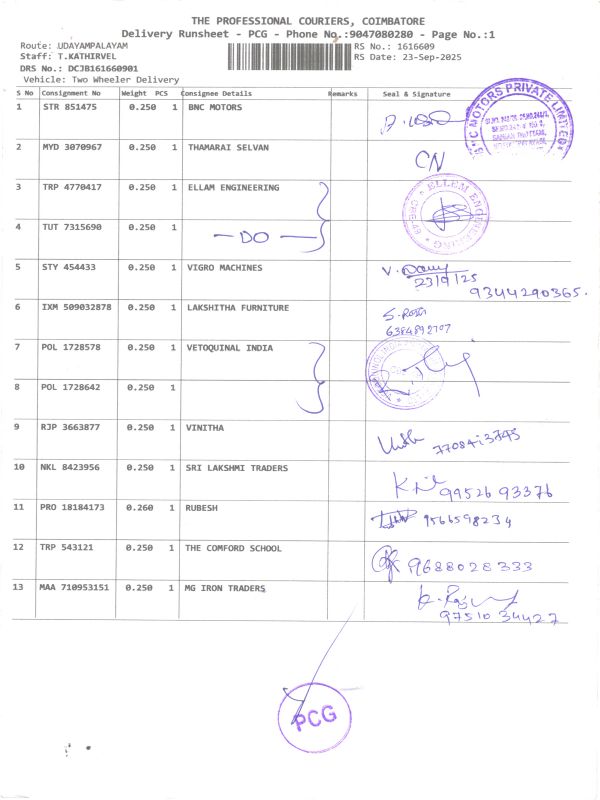 THE PROFESSIONAL COURIERS, COIMBATORE
Delivery Runsheet - PCG - Phone No.:9047080280 - Page No.:1
Route: UDAYAMPALAYAM RS No.: 1616609
Staff: T.KATHIRVEL RS Date: 23-Sep-2025
DRS No.: DCJB161660901
Vehicle: Two Wheeler Delivery
S No Consignment No Weight PCS Consignee Details Remarks Seal & Signature
1 STR 851475 0.250 1 BNC MOTORS
MOTORS PRIVATE LIMITED
2 MYD 3070967 0.250 1 THAMARAI SELVAN CN
3 TRP 4770417 0.250 1 ELLAM ENGINEERING
ELLEM ENGINEERING
4 TUT 7315690 0.250 1 — DO —
5 STY 454433 0.250 1 VIGRO MACHINES
23/9/25
9344290365.
6 IXM 509032878 0.250 1 LAKSHITHA FURNITURE
7 POL 1728578 0.250 1 VETOQUINAL INDIA
8 POL 1728642 0.250 1
9 RJP 3663877 0.250 1 VINITHA
10 NKL 8423956 0.250 1 SRI LAKSHMI TRADERS 9952693376
11 PRO 18184173 0.260 1 RUBESH 9566598234
12 TRP 543121 0.250 1 THE COMFORD SCHOOL 9688028333
13 MAA 710953151 0.250 1 MG IRON TRADERS
9751034427
PCG